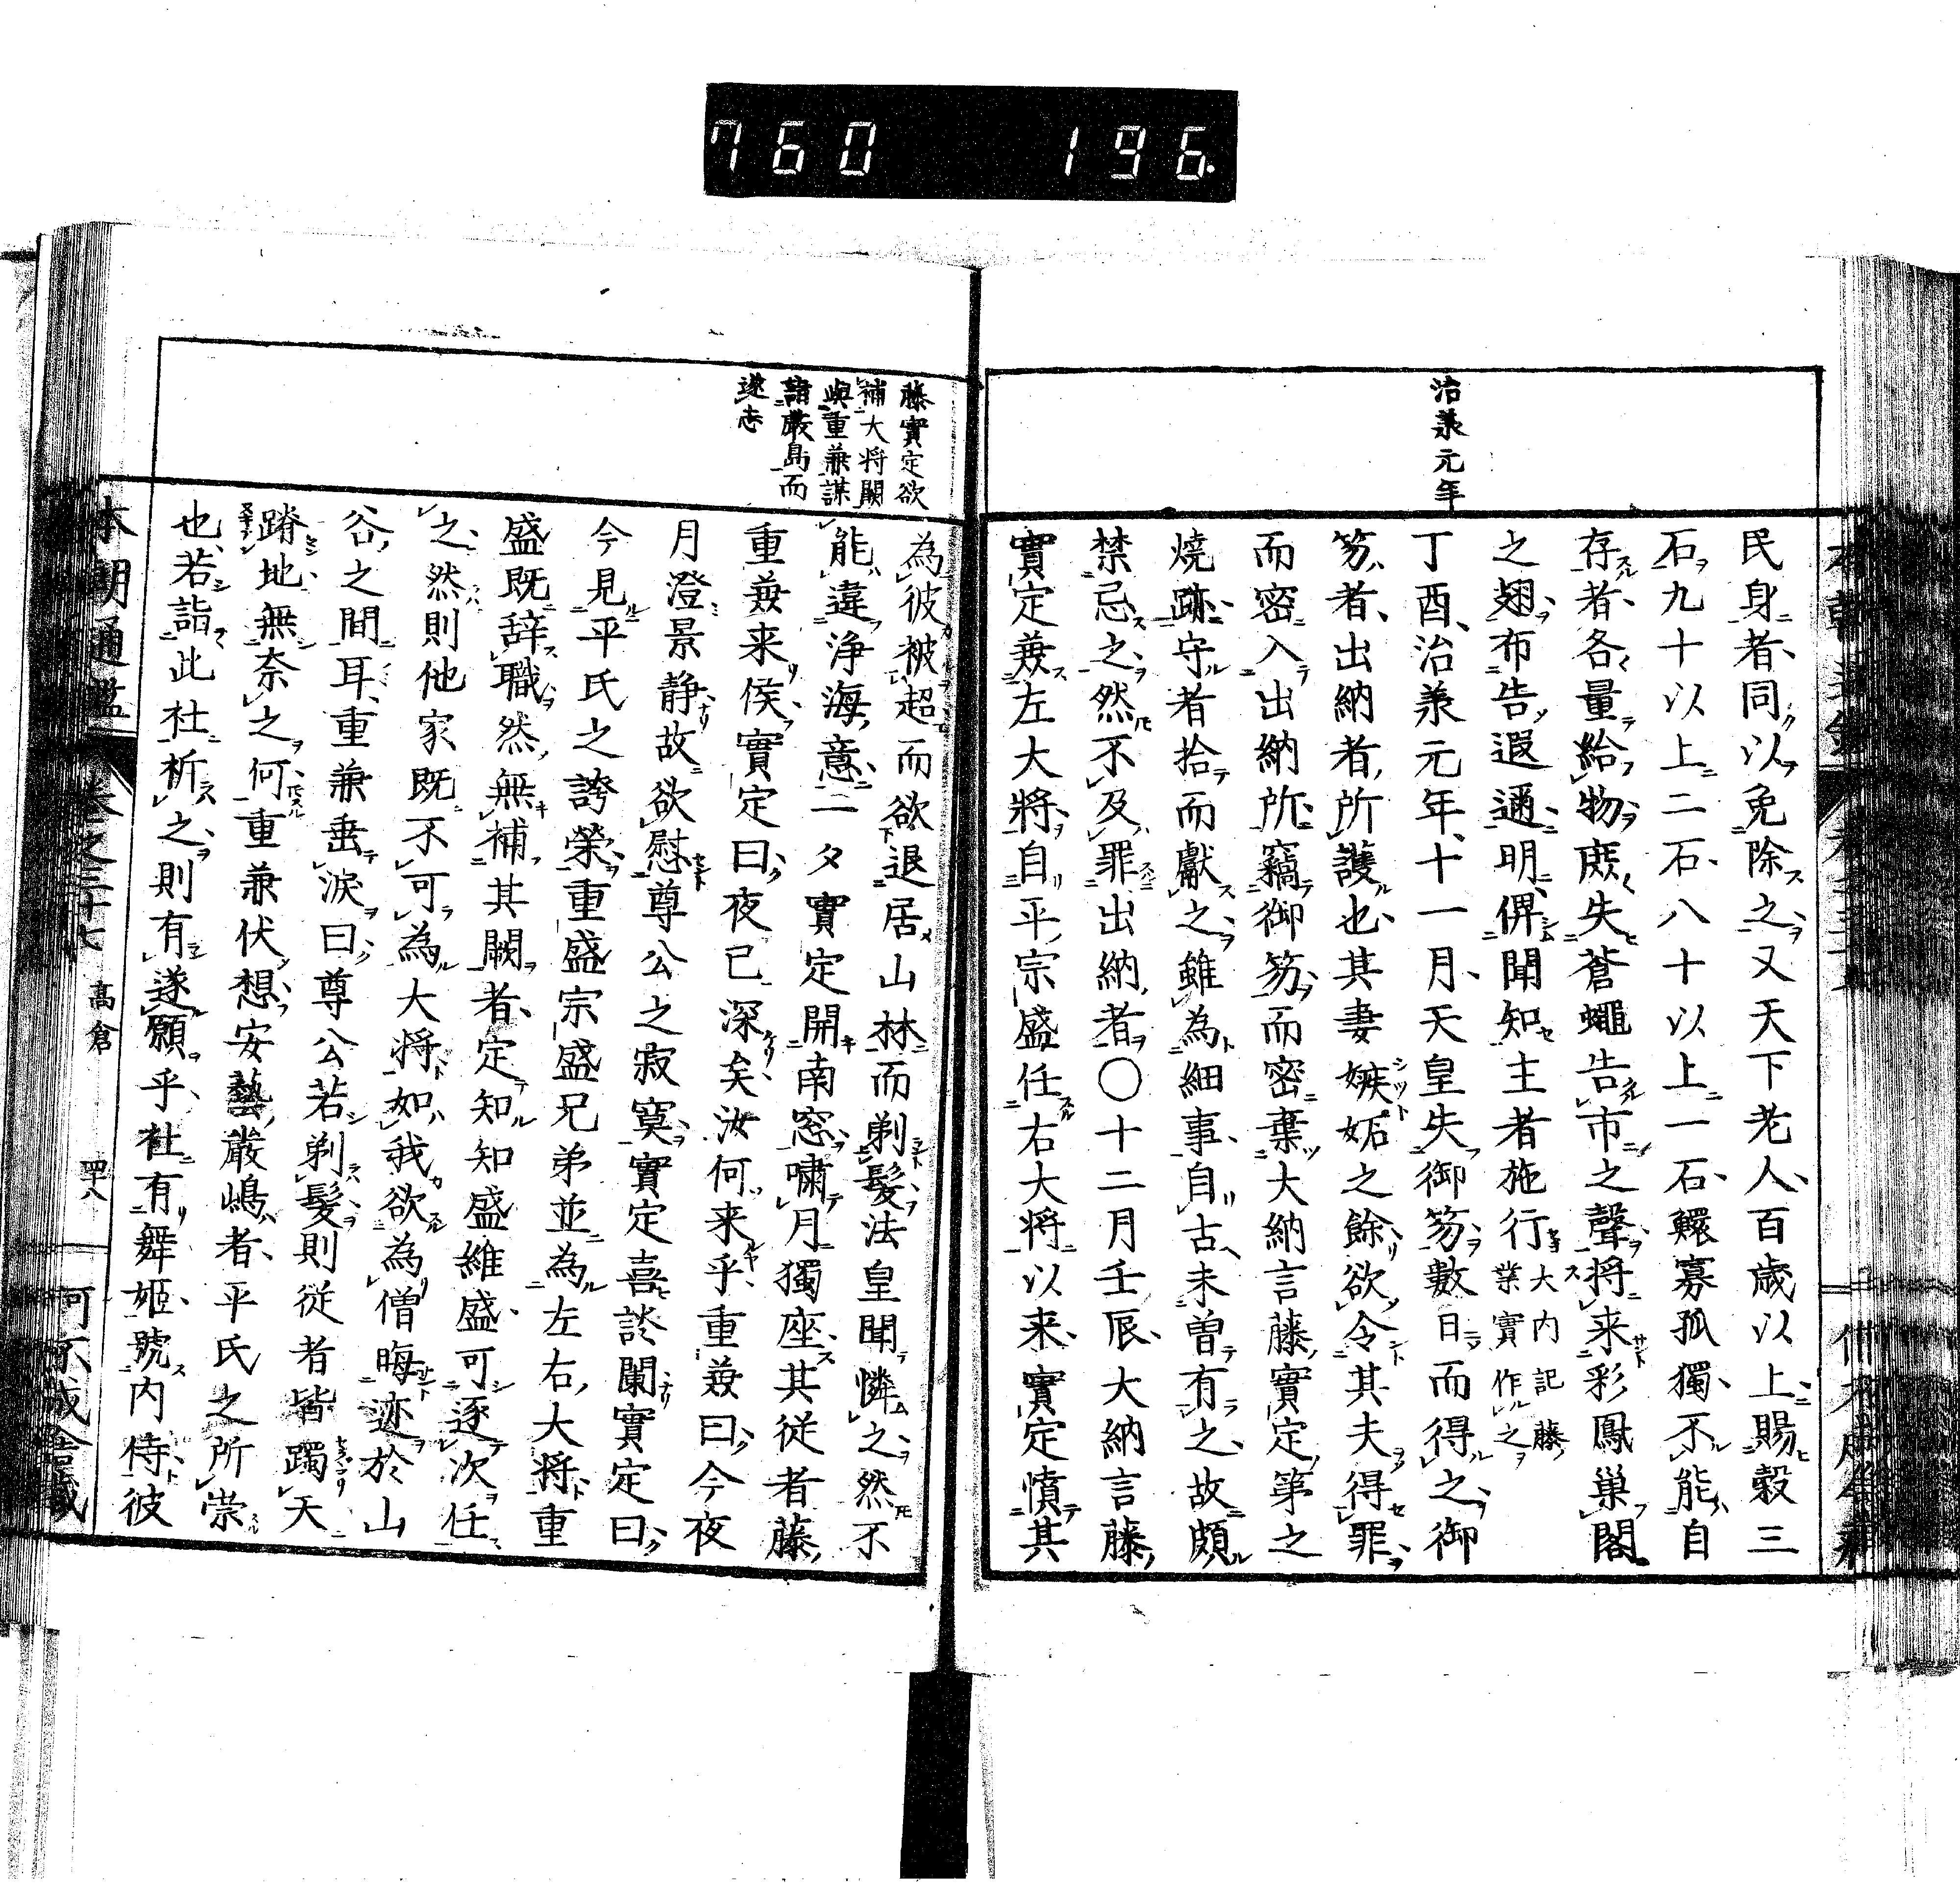 760 196.
治羕元年
民身者同以免除之又天下老人百歳以上賜穀三
石九十以上二石八十以上一石鰥寡孤獨不能自
存者各量給物庶失蒼蠅告市之聲将来彩鳳巢閣
之翅布告遐邇明俾聞知主者施行大内記藤業實作之
丁酉治羕元年十一月天皇失御笏數日而得之御
笏者出納者所護也其妻嫉妬之餘欲令其夫得罪
而密入出納所竊御笏而密棄大納言藤實定第之
燒跡守者拾而獻之雖為細事自古未曽有之故頗
禁忌之然不及罪出納者〇十二月壬辰大納言藤
實定兼左大将自平宗盛任右大将以来實定憤其
藤實定欲
補大将闕
與重兼謀
詣嚴島而
遂志
為彼被超而欲退居山林而剃髮法皇聞憐之然不
能違浄海意一夕實定開南窓嘯月獨座其從者藤
重兼来侯實定曰夜已深矣汝何来乎重兼曰今夜
月澄景静故欲慰尊公之寂寞實定喜談闌實定曰
今見平氏之誇榮重盛宗盛兄弟並為左右大将重
盛既辞職然無補其闕者定知知盛維盛可逐次任
之然則他家既不可為大将如我欲為僧晦迹於山
谷之間耳重兼垂淚曰尊公若剃髮則従者皆躅天
蹐地無奈之何重兼伏想安藝嚴嶋者平氏之所崇
也若詣此社祈之則有遂願乎社有舞姬號内侍彼
本朝通鑑 卷之三十七 高倉 四十八